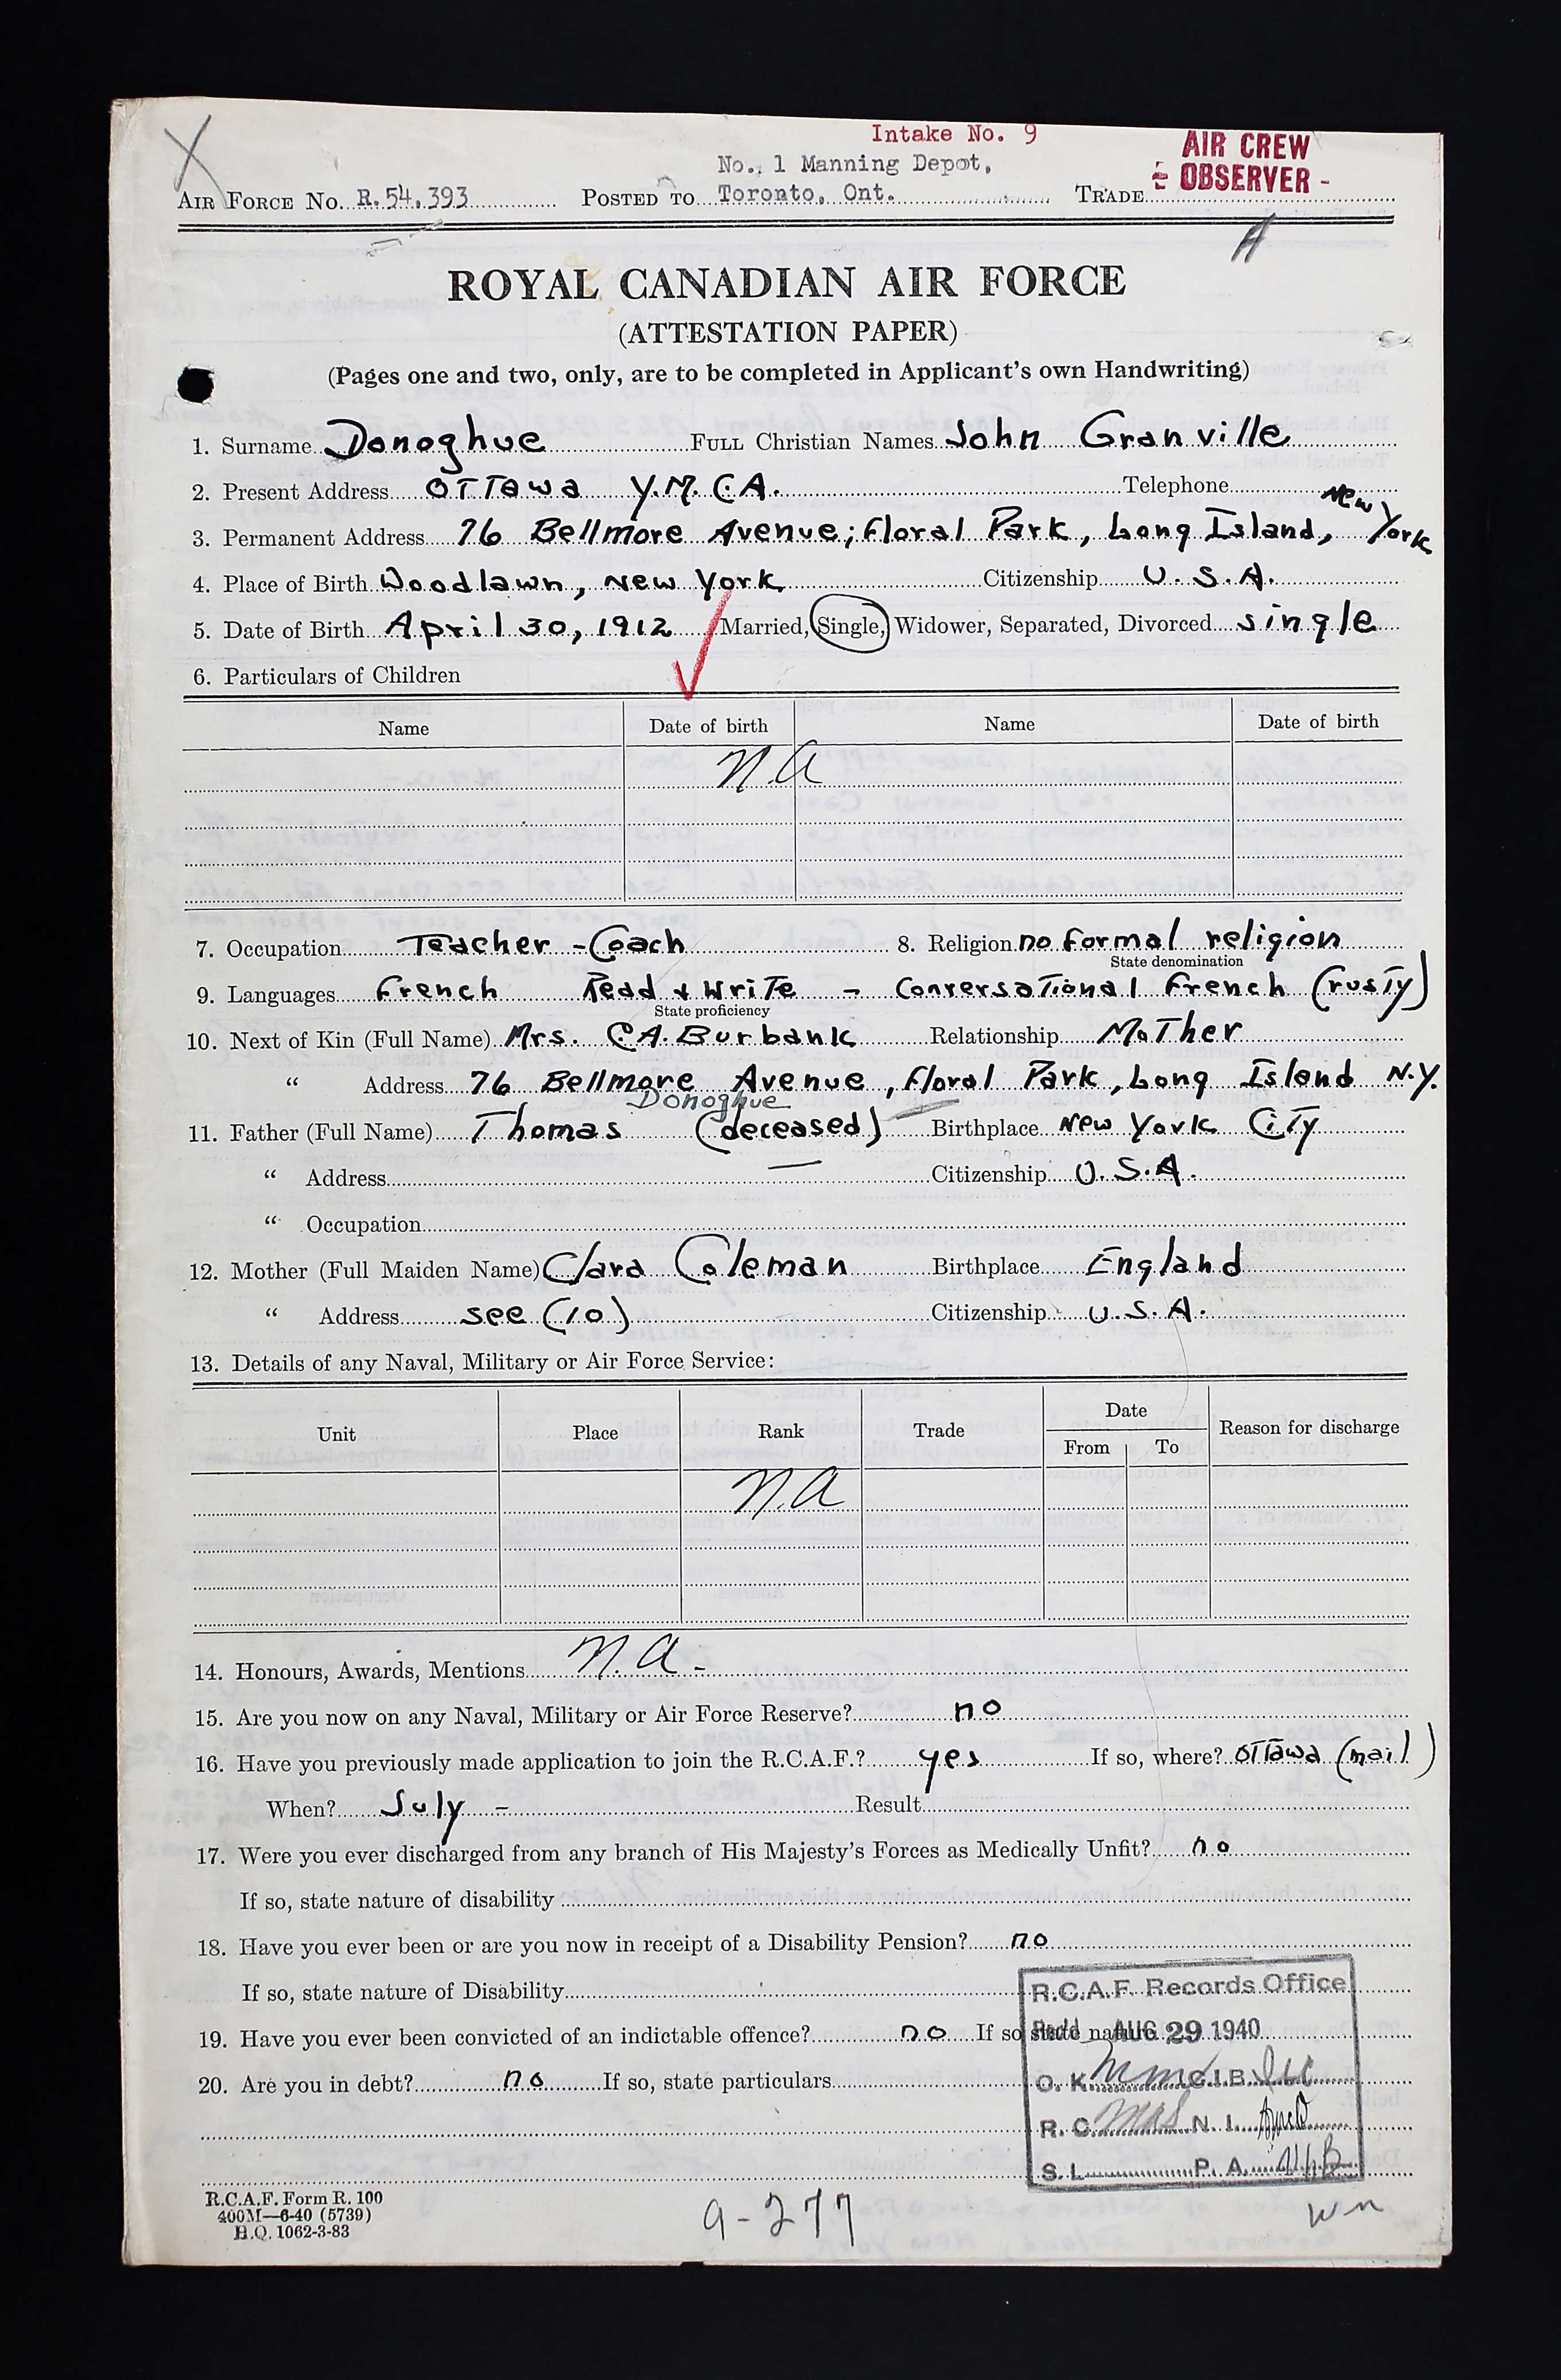 Intake No. 9
AIR CREW
No. 1 Manning Depot,
- OBSERVER -
AIR FORCE No. R.54.393 POSTED TO Toronto, Ont. TRADE
A
ROYAL CANADIAN AIR FORCE
(ATTESTATION PAPER)
(Pages one and two, only, are to be completed in Applicant's own Handwriting)
1. Surname Donoghue FULL Christian Names John Granville
2. Present Address Ottawa Y.M.C.A. Telephone
3. Permanent Address 76 Bellmore Avenue; Floral Park, Long Island, New York
4. Place of Birth Woodlawn, New York Citizenship U.S.A.
5. Date of Birth April 30, 1912 Married, Single, Widower, Separated, Divorced single
6. Particulars of Children
Name Date of birth Name Date of birth
N.A
7. Occupation Teacher - Coach 8. Religion no formal religion
State denomination
9. Languages French Read & Write - Conversational French (rusty)
State proficiency
10. Next of Kin (Full Name) Mrs. C.A. Burbank Relationship Mother
" Address 76 Bellmore Avenue, Floral Park, Long Island N.Y.
Donoghue
11. Father (Full Name) Thomas (deceased) Birthplace New York City
" Address — Citizenship U.S.A.
" Occupation
12. Mother (Full Maiden Name) Clara Coleman Birthplace England
" Address see (10) Citizenship U.S.A.
13. Details of any Naval, Military or Air Force Service:
Unit Place Rank Trade Date Reason for discharge
From To
N.A
14. Honours, Awards, Mentions N.A. -
15. Are you now on any Naval, Military or Air Force Reserve? no
16. Have you previously made application to join the R.C.A.F.? yes If so, where? Ottawa (mail)
When? July - Result
17. Were you ever discharged from any branch of His Majesty's Forces as Medically Unfit? no
If so, state nature of disability
18. Have you ever been or are you now in receipt of a Disability Pension? no
If so, state nature of Disability
R.C.A.F. Records Office
19. Have you ever been convicted of an indictable offence? no If so state nature
Rec'd AUG 29 1940
20. Are you in debt? no If so, state particulars
O. K. C.I.B.
R. C. N. I.
S. L. P. A.
R.C.A.F. Form R. 100
400M—6-40 (5739)
H.Q. 1062-3-83
9-277